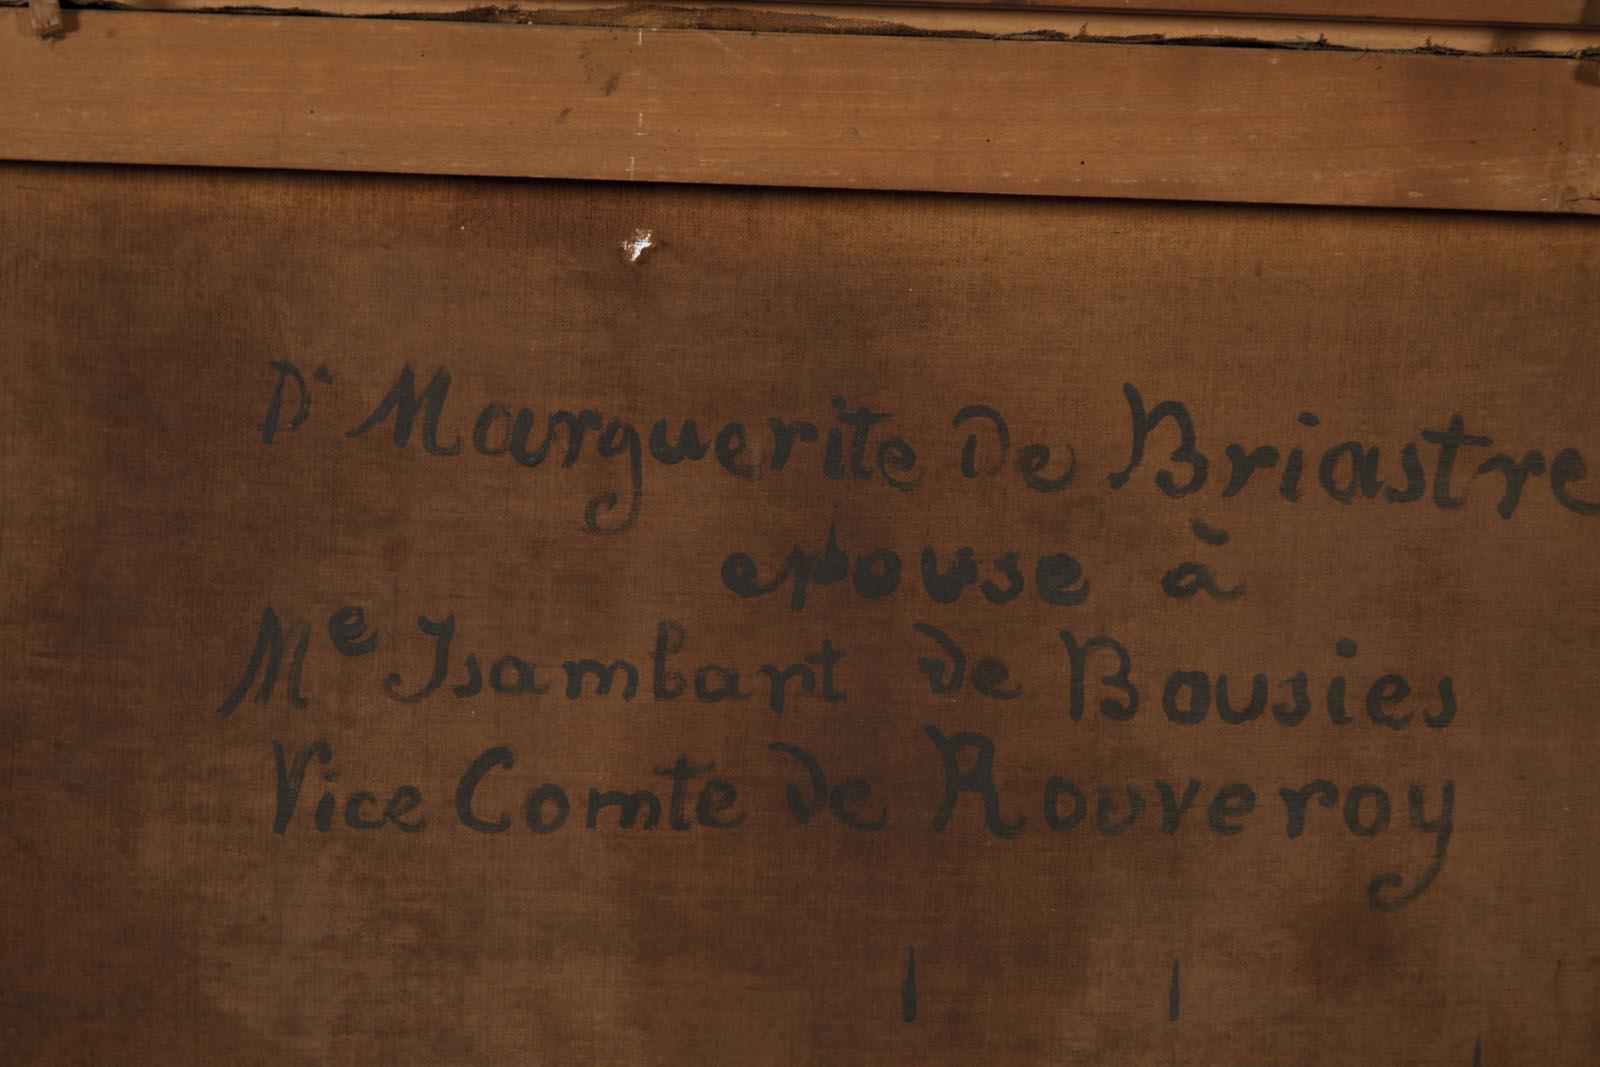 D· Marguerite de Briastre
epouse à
Me Isambart de Bousies
Vice Comte de Rouveroy